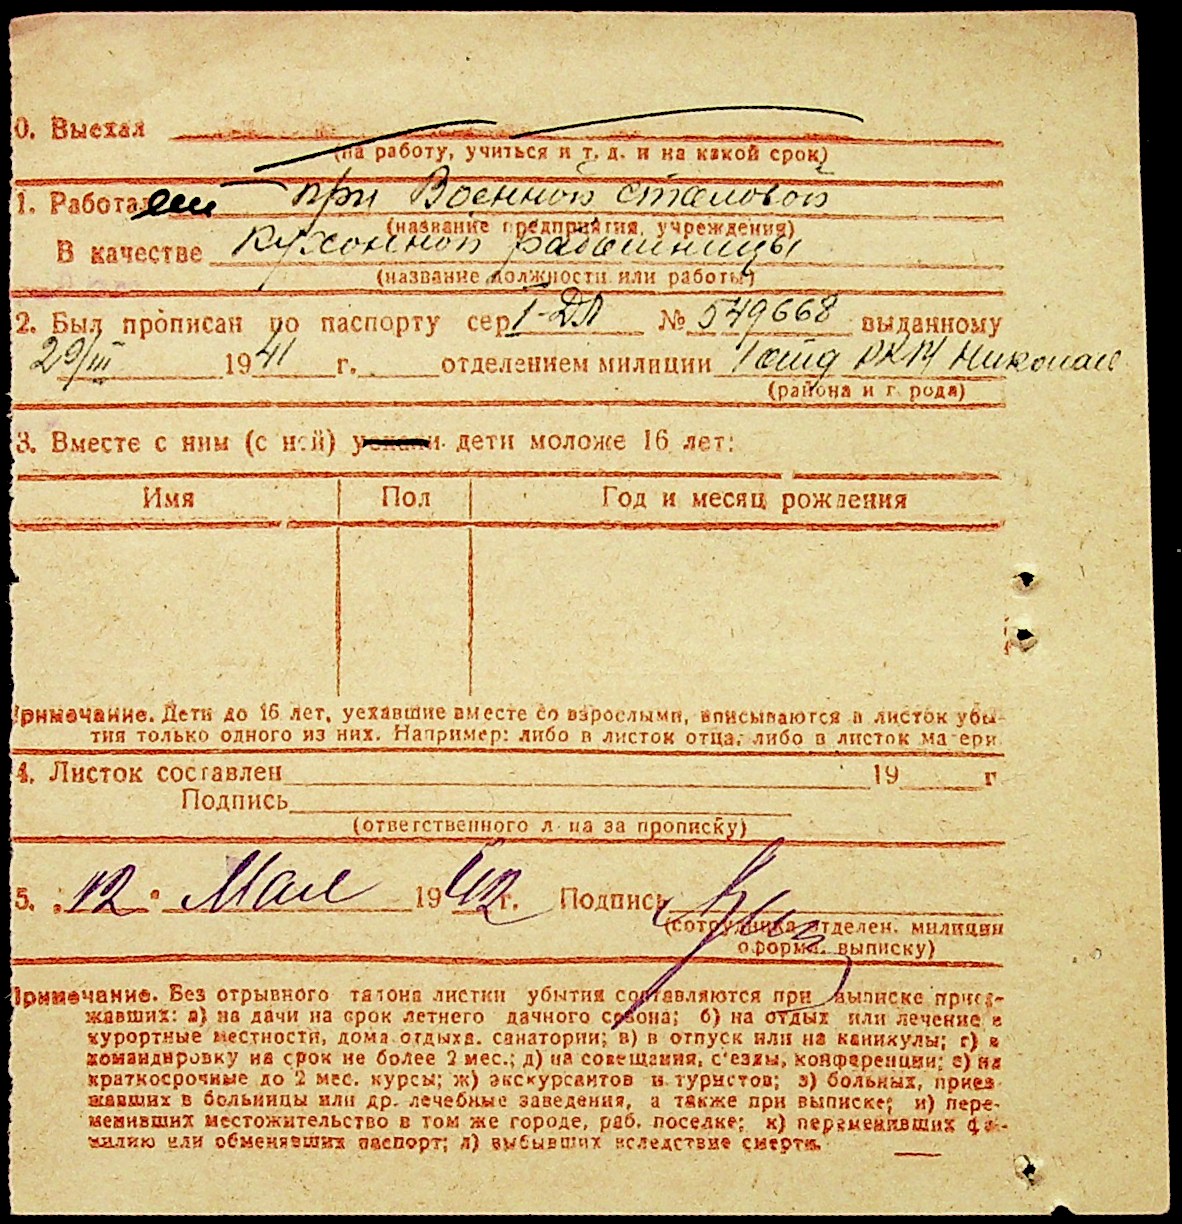 0. Выехал
(на работу, учиться и т. д. и на какой срок)
1. Работал при Военной столовой
(название предприятия, учреждения)
В качестве кухонной работницы
(название должности или работы)
2. Был прописан по паспорту сер I-ДЛ № 549668 выданному
29/III 1941 г. отделением милиции РКМ
(района и г рода)
3. Вместе с ним (с ней) уехали дети моложе 16 лет:
Имя Пол Год и месяц рождения
Примечание. Дети до 16 лет, уехавшие вместе со взрослыми, вписываются в листок убы-
тия только одного из них. Например: либо в листок отца, либо в листок матери
4. Листок составлен 19 г
Подпись
(ответственного л на за прописку)
5. „12" Мая 1942 г. Подпись
(сотрудника отделен. милиции
оформ. выписку)
Примечание. Без отрывного талона листки убытия составляются при выписке приез-
жавших: а) на дачи на срок летнего дачного сезона; б) на отдых или лечение в
курортные местности, дома отдыха. санатории; в) в отпуск или на каникулы; г) в
командировку на срок не более 2 мес.; д) на совещания, с'езды, конференции; е) на
краткосрочные до 2 мес. курсы; ж) экскурсантов и туристов; з) больных, приез
жавших в больницы или др. лечебные заведения, а также при выписке; и) пере-
менивших местожительство в том же городе, раб. поселке; к) переменивших фа-
милию или обменявших паспорт; л) выбывших вследствие смерти.